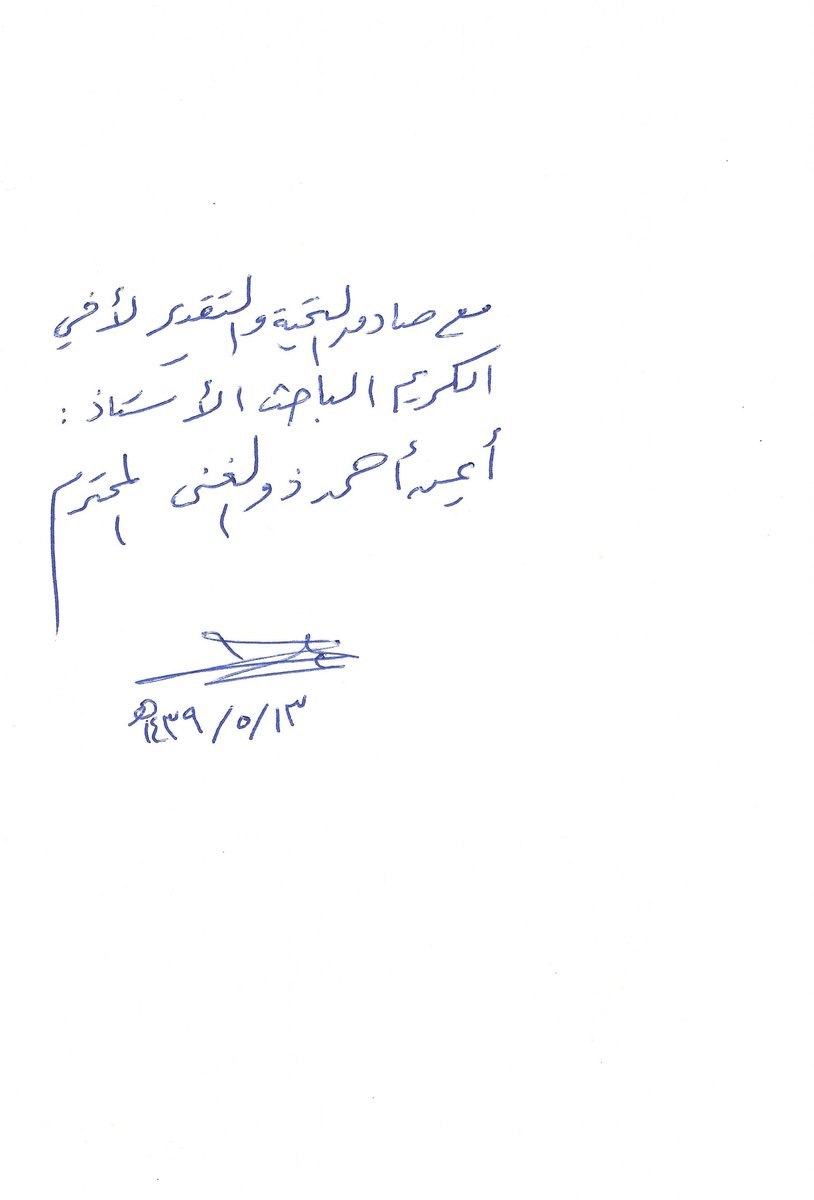 مع صادق التحية والتقدير لأخي
الكريم الباحث الأستاذ :
أيمن أحمد ذو الغنى المحترم
١٤٣٩/٥/١٣هـ